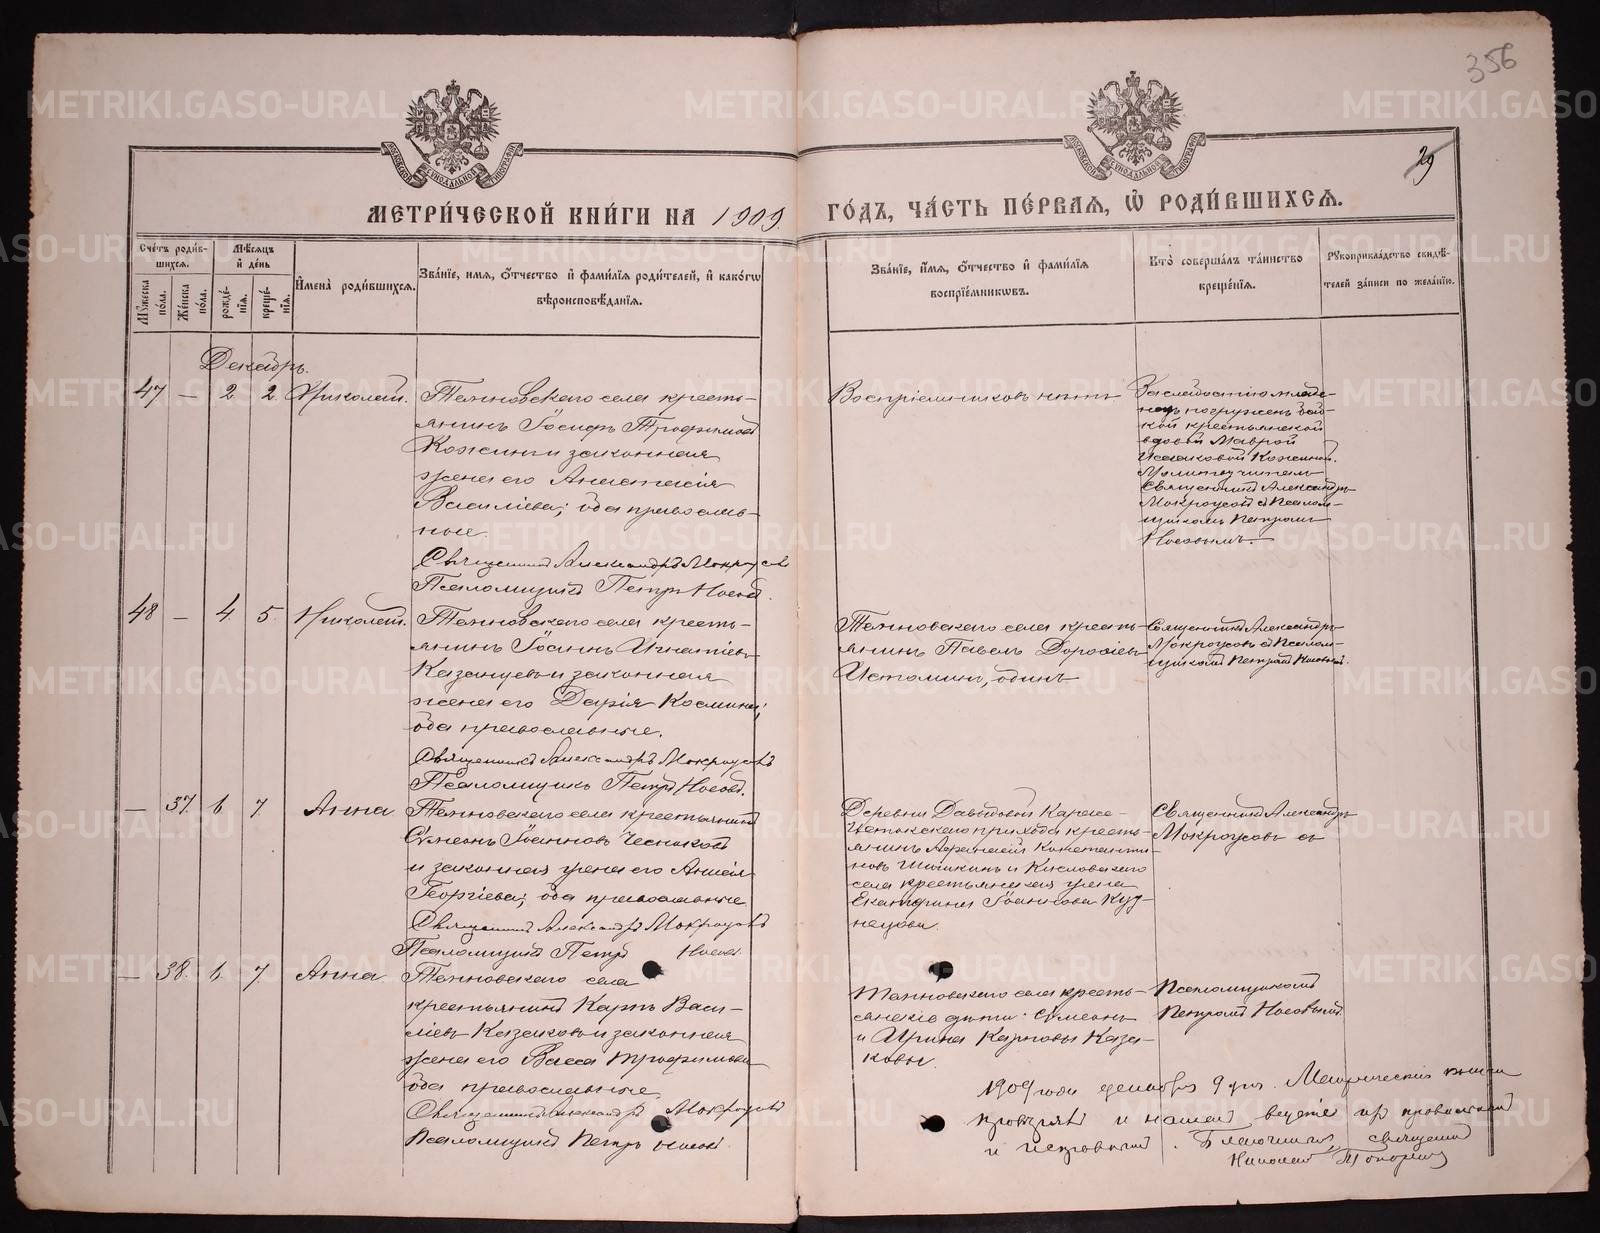 356
29
МОСКОВСКОЙ СѴНОДАЛЬНОЙ ТИПОГРАФІИ
МОСКОВСКОЙ СѴНОДАЛЬНОЙ ТИПОГРАФІИ
МЕТРИ́ЧЕСКОЙ КНИ́ГИ НА 1909 ГО́ДЪ, ЧА́СТЬ ПЕ́РВАЯ, Ѡ РОДИ́ВШИХСЯ.
Сче́тъ роди́в-
шихся.
Мꙋжеска по́ла.
Же́нска по́ла.
Мѣ́сяцъ
и де́нь
рожде́-
нія.
креще́-
нія.
Имена̀ роди́вшихся.
Зва́ніе, имя, о́тчество и фами́лія роди́телей, и како́гѡ
вѣроисповѣ́данія.
Зва́ніе, и́мя, о́тчество и фами́лія
воспріе́мникѡвъ.
Кто̀ соверша́лъ та́инство
креще́нія.
Рꙋкоприкла́дство свидѣ́-
телей за́писи по жела́нію.
Декабрь.
47 — 2 2 Николай.
села кресть-
янинъ Іосифъ Трофимовъ
Кожинъ и законная
жена его Анастасія
Василіева; оба православ-
ные.
Священникъ Александръ Мокроусовъ
Псаломщикъ Петръ Носовъ.
Воспріемниковъ нѣтъ
За слабостію младе-
нецъ погруженъ баб-
кой крестьянской
вдовой Маврой
Исааковой Кожиной.
Молитву читалъ
Священникъ Александръ
Мокроусовъ съ Псалом-
щикомъ Петромъ
Носовымъ.
48 — 4 5 Николай.
села кресть-
янинъ Іоаннъ Игнатіевъ
Казанцевъ и законная
жена его Дарія Космина;
оба православные.
Священникъ Александръ Мокроусовъ
Псаломщикъ Петръ Носовъ.
села кресть-
янинъ Павелъ Дороѳеевъ
Истоминъ, одинъ
Священникъ Александръ
Мокроусовъ съ Псалом-
щикомъ Петромъ Носовымъ.
— 37. 6 7 Анна
села крестьянинъ
Сѵмеонъ Іоанновъ Чесноковъ
и законная жена его
Георгіева; оба православные
Священникъ Александръ Мокроусовъ
Псаломщикъ Петръ Носовъ.
Деревни Давыдовой
прихода кресть-
янинъ Аѳанасій Константи-
новъ Шишкинъ и Кисловского
села крестьянская жена
Екатерина Іоаннова Куз-
нецова.
Священникъ Александръ
Мокроусовъ съ
— 38. 6 7 Анна.
села
крестьянинъ Карпъ Васи-
ліевъ Казаковъ и законная
жена его Васса Трофимова
оба православные
Священникъ Александръ Мокроусовъ
Псаломщикъ Петръ Носовъ.
села кресть-
янскіе дѣти: Сѵмеонъ
и Ирина Карповы Каза-
ковы.
Псаломщикомъ
Петромъ Носовымъ.
1909 года декабря 9 дня. Метрическія книги
и
и . Благочинный священникъ
Николай Топорковъ